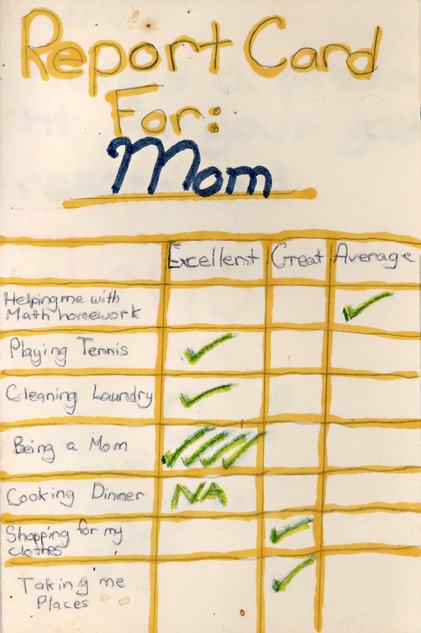 Report Card
For:
Mom
Excellent Great Average
Helping me with
Math homework
Playing Tennis
Cleaning Laundry
Being a Mom
Cooking Dinner NA
Shopping for my
clothes
Taking me
Places